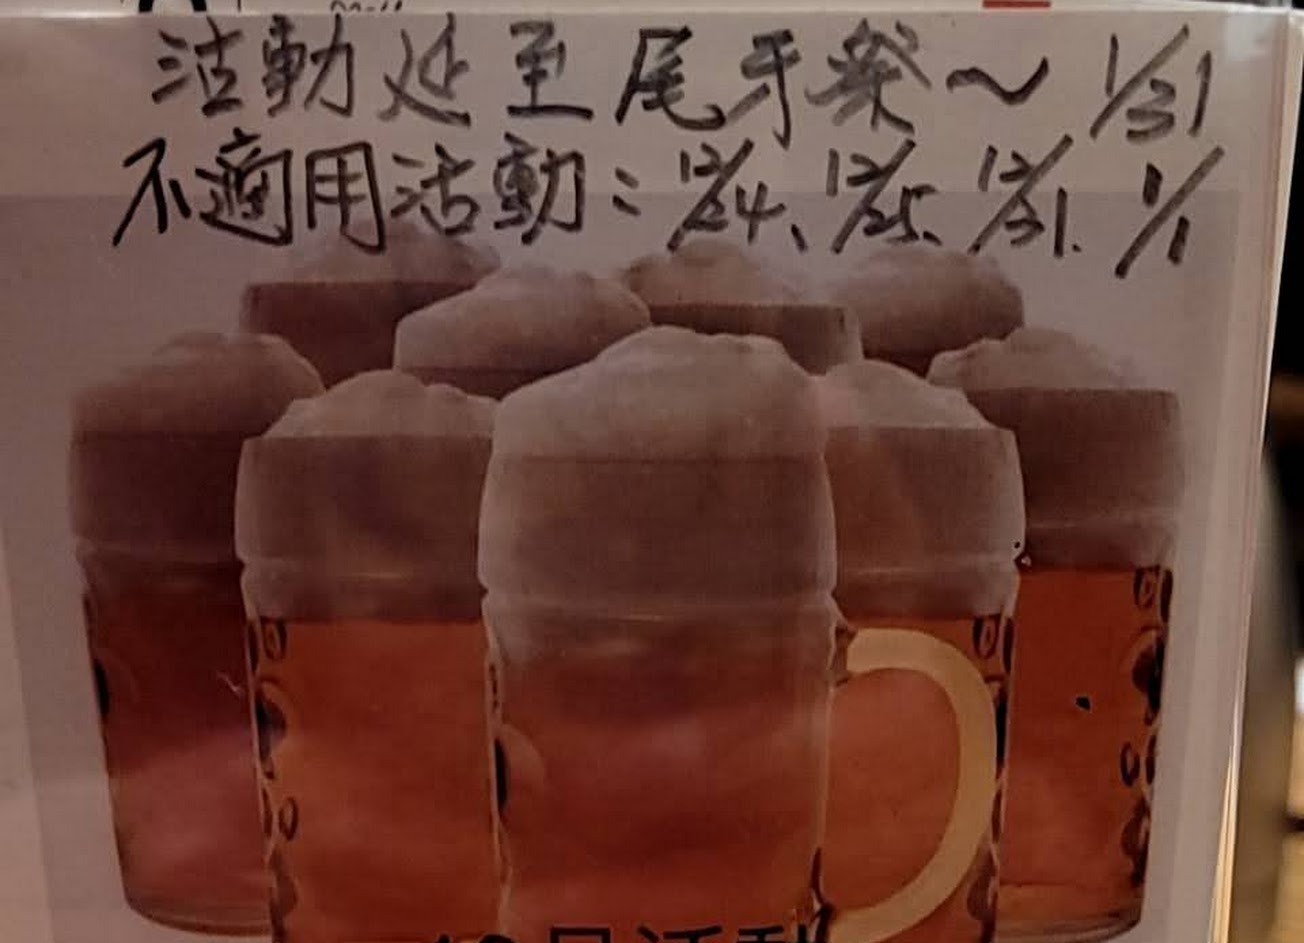 活動延至尾牙祭～1/31
不適用活動：12/24、12/25、12/31、1/1